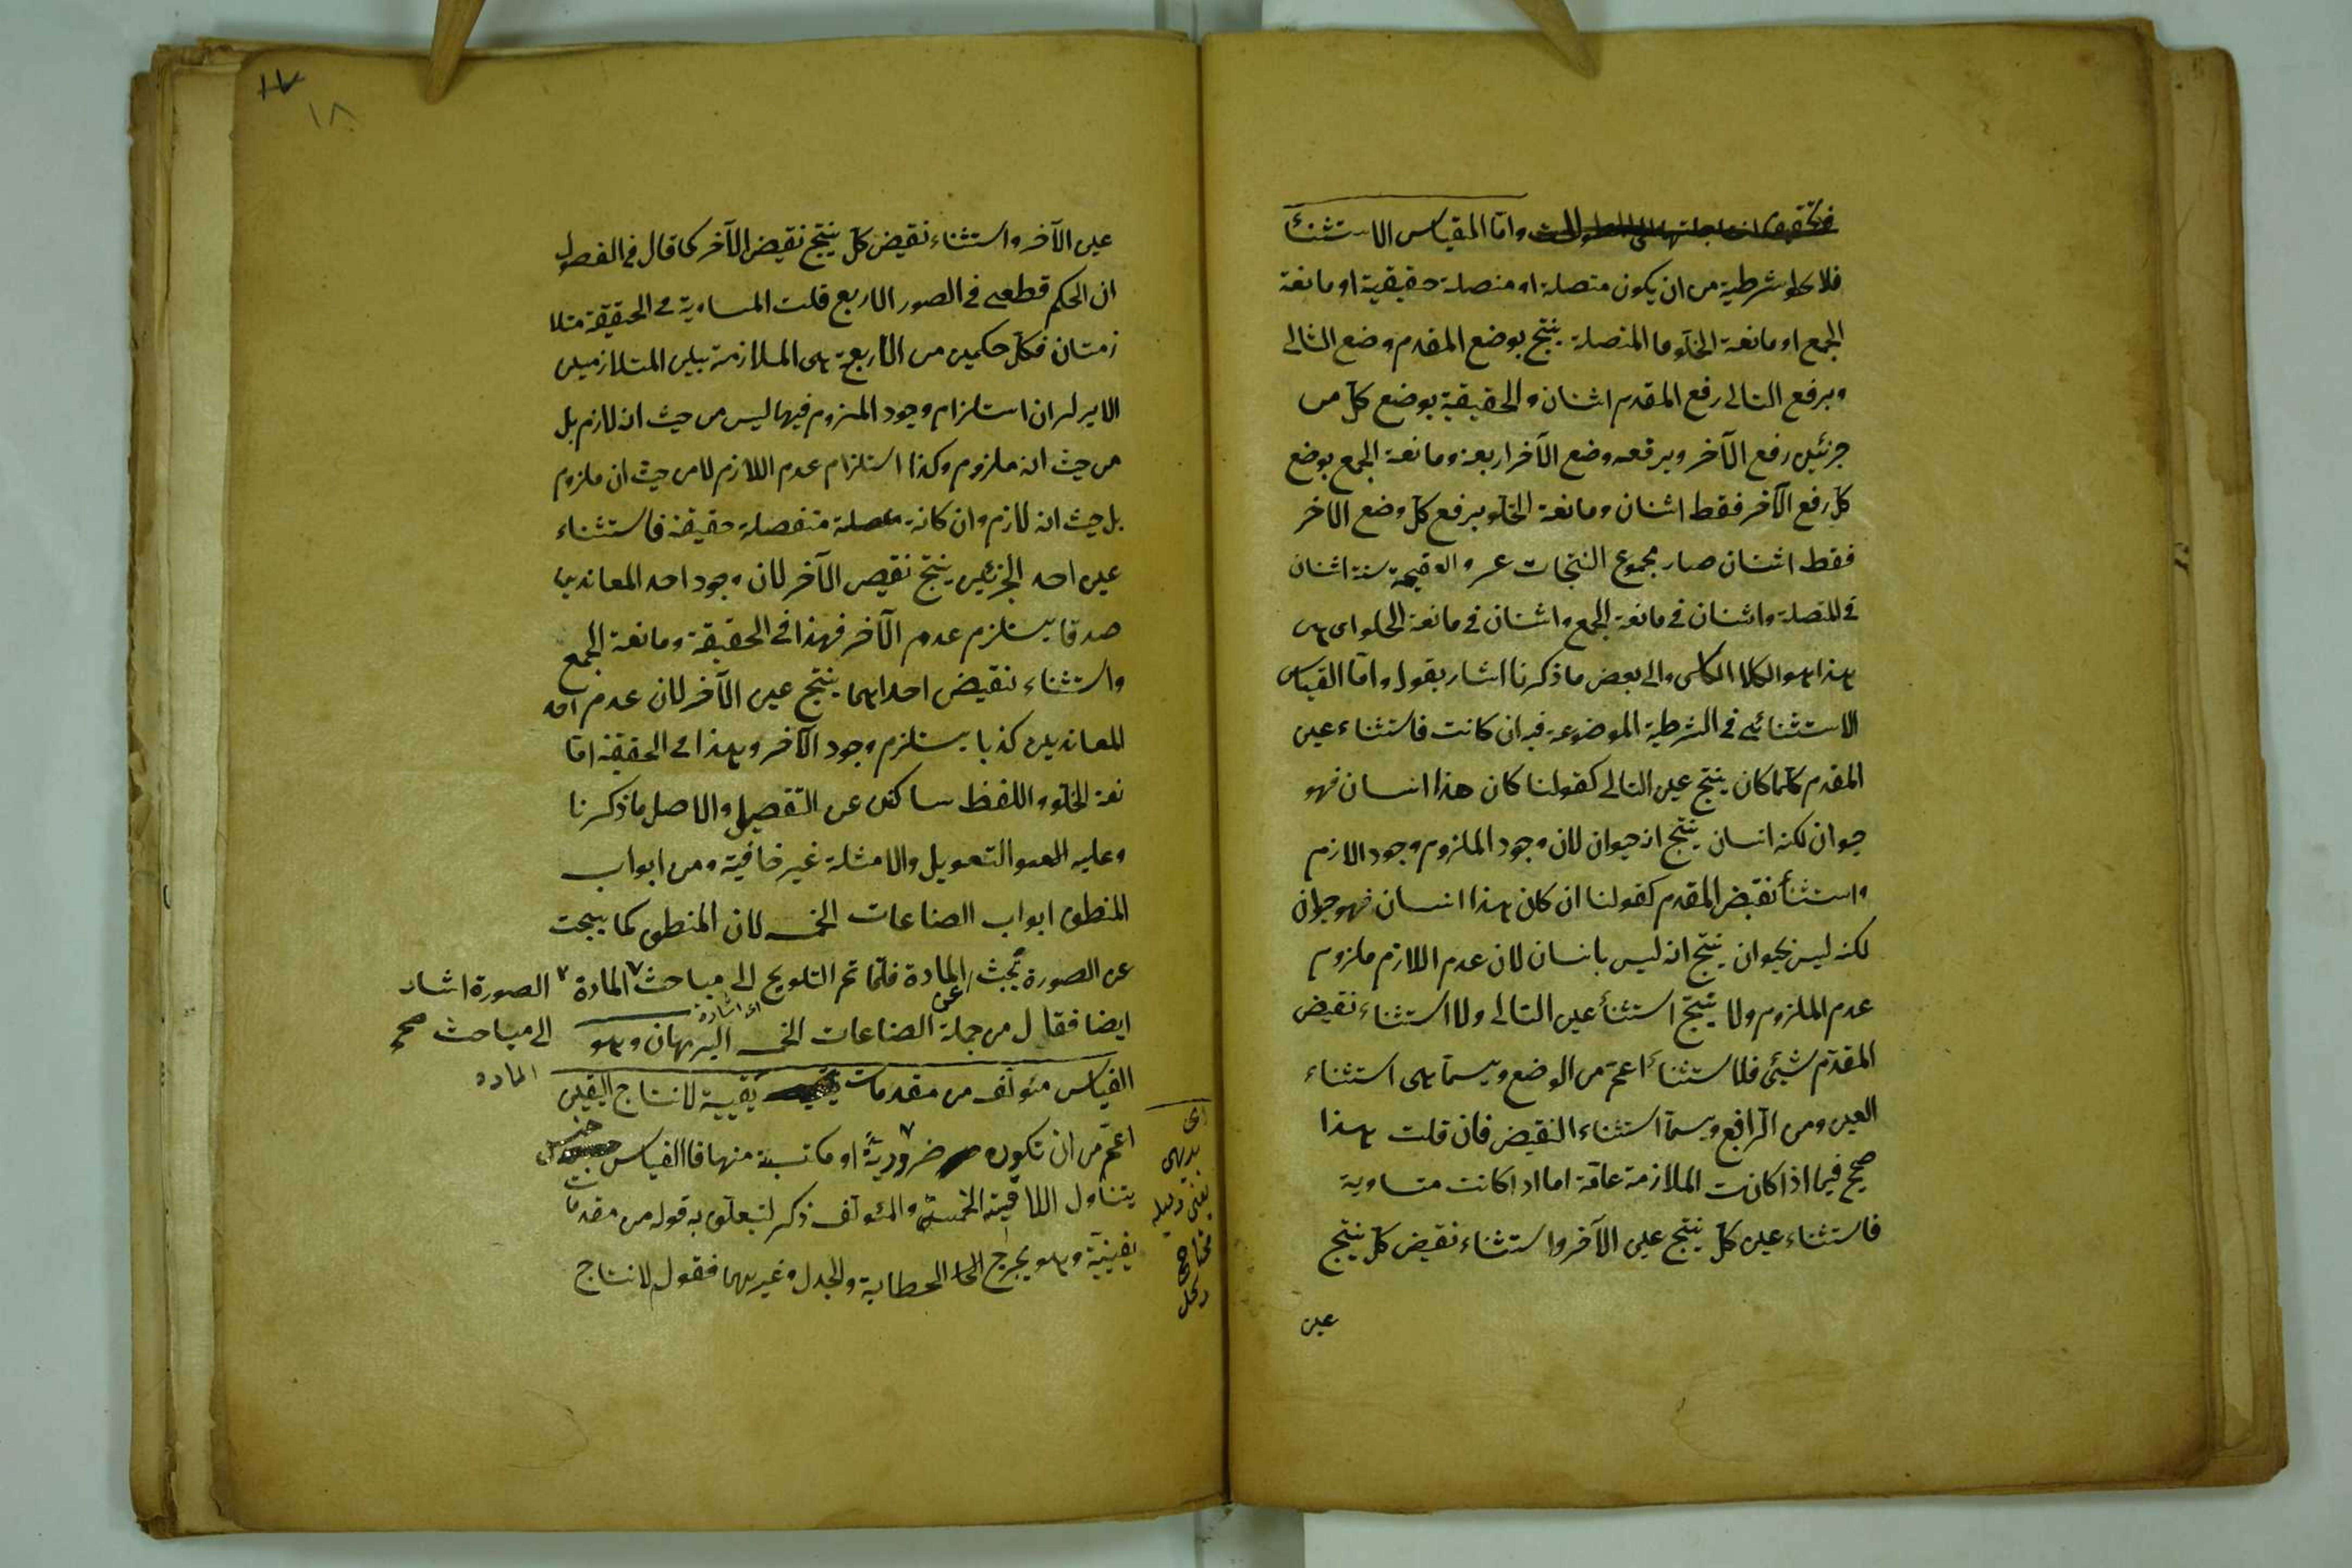 واما القياس الاستثنأ
فلا يخلو شرطية من ان يكون متصلة او منصلة حقيقية او مانعة
الجمع او مانعة الخلو وما المتصلة ينتج بوضع المقدم وضع التالى
وبرفع التالى رفع المقدم اثنان والحقيقية بوضع كل من
جزئين رفع الآخر وبرفعه وضع الآخر اربعة ومانعة الجمع بوضع
كل رفع الآخر فقط اثنان ومانعة الخلو برفع كل وضع الآخر
فقط اثنان صار مجموع النتجات عشر والعقيمة ستة اثنان
فى المتصلة واثنان فى مانعة الجمع واثنان فى مانعة الخلو
هذا هو الكلام والى بعض ما ذكرنا اشار بقوله واما القياس
الاستثنائى فى الشرطية الموضوعة فيه ان كانت فاستثناء عين
المقدم كلما كان ينتج عين التالى كقولنا كان هذا انسان فهو
حيوان لكنه انسان ينتج انه حيوان لان وجود الملزوم وجود الازم
واستثنأ نقيض المقدم كقولنا ان كان هذا انسان فهو حيوان
لكنه ليس بحيوان ينتج انه ليس بانسان لان عدم اللازم ملزوم
عدم الملزوم ولا ينتج استثنأ عين التالى ولا استثناء نقيض
المقدم شيئ فلاستثنأ اعم من الوضع ويسمى استثناء
العين ومن الرافع ويسمى استثناء النقيض فان قلت هذا
صحيح فيما اذا كانت الملازمة عامة اما اذا كانت متساوية
فاستثناء عين كل ينتج عين الآخر واستثناء نقيض كل ينتج
عين
١٨
عين الآخر واستثناء نقيض كل ينتج نقيض الآخر كما قال فى الفصول
ان الحكم قطعى فى الصور الاربع قلت المساوية فى الحقيقة متلا
زمتان فكل حكمين من الاربعة هى الملازمة بين المتلازمين
الا يرى ان استلزام وجود الملزوم فيها ليس من حيث انه لازم بل
من حيث انه ملزوم وكذا استلزام عدم اللازم لا من حيث ان ملزوم
بل حيث انه لازم وان كانة منفصلة حقيقة فاستثناء
عين احد الجزئين ينتج نقيض الآخر لان وجود احد المعاندين
صدقا يستلزم عدم الآخر فهذا فى الحقيقة ومانعة الجمع
واستثناء نقيض احداهما ينتج عين الآخر لان عدم احد
المعاندين كذبا يستلزم وجود الآخر وهذا فى الحقيقة اما
نعة الخلو واللفظ ساكت عن التفصيل والاصل ما ذكرنا
وعليه التعويل والامثلة غير خافية ومن ابواب
المنطق ابواب الصناعات الخمسة لان المنطق كما يبحث
عن الصورة يبحث عن المادة فلما تم التلويح الى مباحث المادة الصورة اشار
الى مباحث صح
المادة
ايضا فقال من جملة الصناعات الخمس البرهان وهو
القياس مئولف من مقدمات يقينية لانتاج اليقين
اعم من ان تكون ضرورية او مكتسبة منها فالقياس جنس
يتناول الاقيسة الخمسة والمئولف ذكر لتعلق به قوله من مقدمات
يقينية وهو يخرج الخطابية والجدل وغيرهما فقول لانتاج
اى
بديهى
يعنى دليله
محتاج
دكل